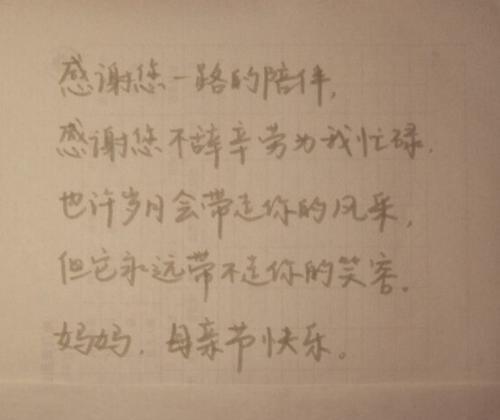 感谢您一路的陪伴,
感谢您不辞辛劳为我忙碌.
也许岁月会带走你的风采,
但它永远带不走你的笑容。
妈妈.母亲节快乐。